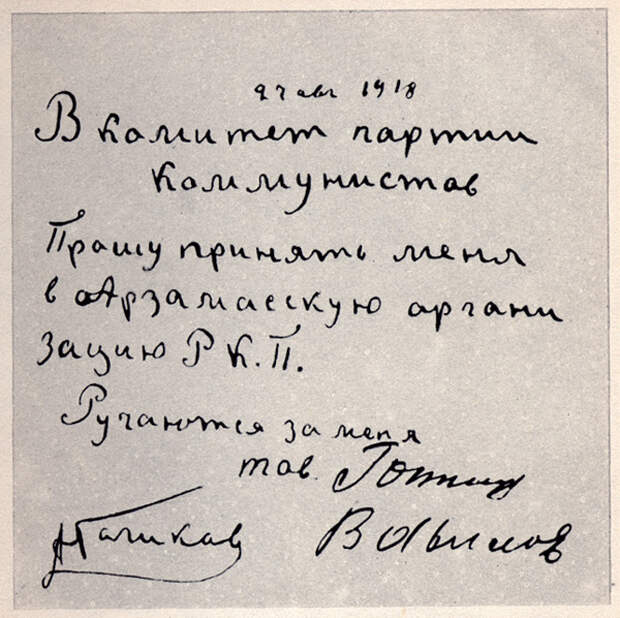 27 авг 1918
В комитет партии
коммунистов
Прошу принять меня
в Арзамасскую органи
зацию Р К.П.
Ручаются за меня
тов. Гоппиус
АГоликов Вавилов